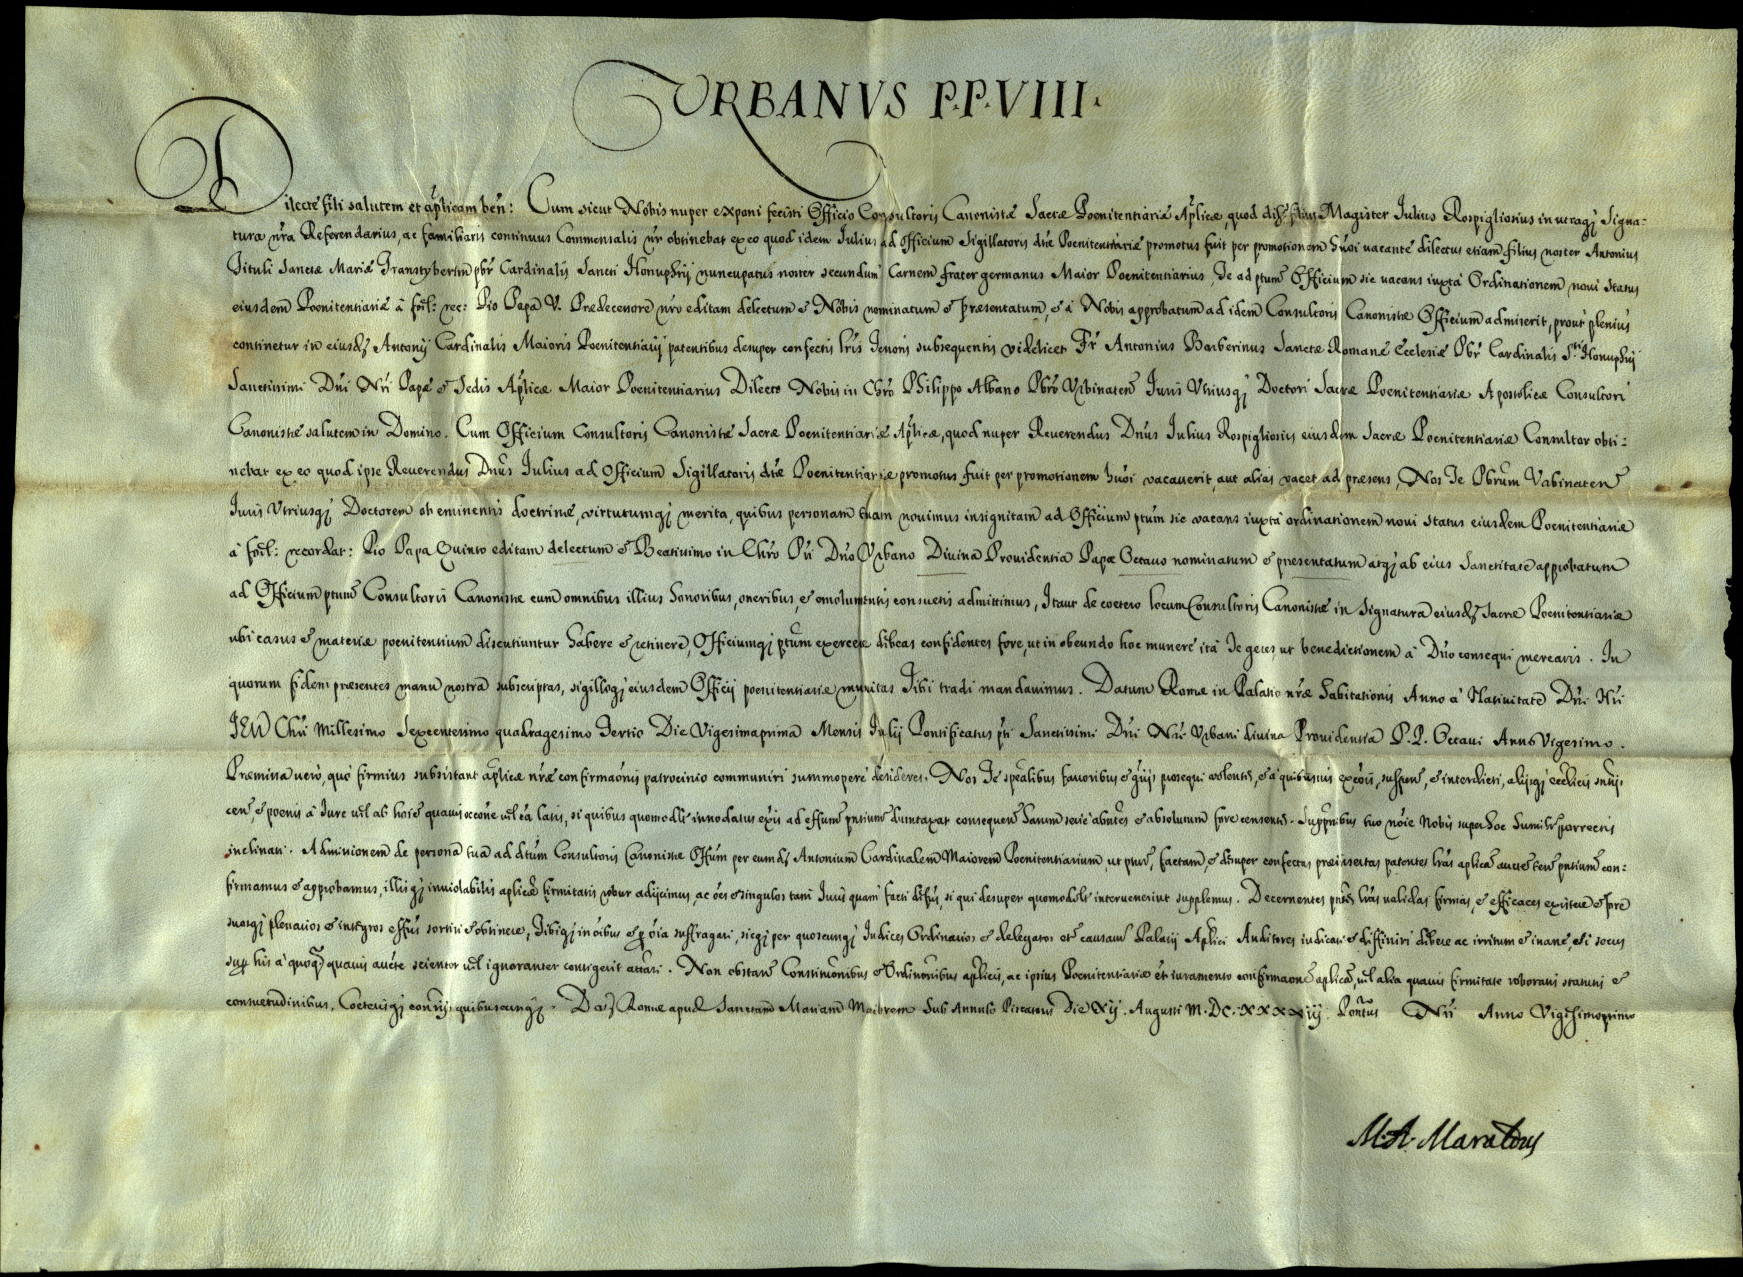 URBANVS P.P. VIII.
Dilecte fili salutem et aplicam ben: Cum sicut Nobis nuper exponi fecisti Officio Consultoris Canonistæ Sacræ Poenitentiariæ Aplicæ, quod Magister Iulius Rospigliosius in utraq; Signa-
tura nra Referendarius, ac familiaris continuus Commensalis nr obtinebat ex eo quod idem Iulius ad officium Sigillatoris dte Poenitentiariæ promotus fuit per promotionem huoi vacante dilectus etiam filius noster Antonius
Tituli Sanctæ Mariæ Transtyberim pbr Cardinalis Sancti Honuphrij nuncupatus noster secundum Carnem frater germanus Maior Poenitentiarius, Te ad ptum Officium sic vacans iuxta Ordinationem novi status
eiusdem Poenitentiariæ à fœl: rec: Pio Papa V. Prædecessore nro editam delectum et Nobis nominatum et præsentatum, et à Nobis approbatum ad idem Consultoris Canonistæ Officium admiserit, prout plenius
continetur in eiusd; Antonij Cardinalis Maioris Poenitentiarij patentibus desuper confectis lris Tenoris subsequentis videlicet Fr Antonius Barberinus Sanctæ Romanæ Ecclesiæ Pbr Cardinalis Sti Honuphrij
Sanctissimi Dni Nri Papæ et Sedis Aplicæ Maior Poenitentiarius Dilecto Nobis in Chro Philippo Albano Pbro Urbinaten Iuris Utriusq; Doctori Sacræ Poenitentiariæ Apostolicæ Consultori
Canonistæ salutem in Domino. Cum Officium Consultoris Canonistæ Sacræ Poenitentiariæ Aplicæ, quod nuper Reverendus Dnus Iulius Rospigliosius eiusdem Sacræ Poenitentiariæ Consultor obti-
nebat ex eo quod ipse Reverendus Dnus Iulius ad Officium Sigillatoris dtæ Poenitentiariæ promotus fuit per promotionem huoi vacaverit, aut alias vacet ad præsens, Nos Te Pbrum Urbinaten
Iuris Utriusq; Doctorem ob eminentis doctrinæ, virtutumq; merita, quibus personam tuam novimus insignitam ad Officium ptum sic vacans iuxta ordinationem novi status eiusdem Poenitentiariæ
à fœl: recordat: Pio Papa Quinto editam delectum et Beatissimo in Chro Pri Dno Urbano Divina Providentia Papæ Octavo nominatum et præsentatum atq; ab eius Sanctitate approbatum
ad Officium ptum Consultoris Canonistæ cum omnibus illius honoribus, oneribus, et emolumentis consuetis admittimus, Itaut de coetero locum Consultoris Canonistæ in signatura eiusd; Sacræ Poenitentiariæ
ubi casus et materiæ poenitentium discutiuntur habere et retinere, Officiumq; ptum exercere debeas confidentes fore, ut in obeundo hoc munere ità Te geres, ut benedictionem à Dno consequi merearis. In
quorum fidem præsentes manu nostra subscriptas, sigilloq; eiusdem Officij poenitentiariæ munitas Tibi tradi mandavimus. Datum Romæ in Palatio nræ habitationis Anno à Nativitate Dni Nri
IESU Chri Millesimo Sexcentesimo quadragesimo Tertio Die Vigesimaprima Mensis Iulij Pontificatus pti Sanctissimi Dni Nri Urbani divina Providentia P.P. Octavi Anno Vigesimo.
Præmissa vero, quo firmius subsistant aplicæ nræ confirmaonis patrocinio communiri summopere desideres. Nos Te spealibus favoribus et prosequi volentes, et à quibusvis excois, suspens, et interdicti, alijsq; eccliicis
cen, et poenis à Iure vel ab hoie quavis occone vel latis, si quibus quomodlt innodatus exis ad effum pntium duntaxat consequen harum serie absolutum fore censentes. tuo noie Nobis super hoc humilr porrectis
inclinati. Admissionem de persona tua ad dtum Consultoris Canonistæ Offum per eumd; Antonium Cardinalem Maiorem Poenitentiarium, ut factam, et desuper confectas præinsertas patentes lras aplica pntium con-
firmamus et approbamus, illisq; inviolabilis aplicæ firmitatis robur adijcimus, ac oes et singulos tam Iuris quam facti defus, si qui desuper quomodolt intervenerint supplemus. Decernentes lras validas firmas, et efficaces existere et fore
suosq; plenarios et integros effus sortiri et obtinere, Tibiq; in oibus et p oia suffragari, sicq; per quoscunq; Iudices Ordinarios et delegatos et causarum Palatij Aplici Auditores iudicari et diffiniri debere ac irritum et inane, si secus
sup his à quoq; quavis aucte scienter vel ignoranter contigerit attari. Non obstan Constitnonibus et Ordinonibus aplicis, ac ipsius Poenitentiariæ et iuramento confirmaone aplica, vel alia quavis firmitate roboratis statutis et
consuetudinibus, Coeterisq; conrijs quibuscunq;. Dat Romæ apud Sanctam Mariam Maiorem Sub Annulo Piscatoris Die XIJ. Augusti M.DC.XXXXIIJ. Pontus Nri Anno Vigesimoprimo
M.A. Maraldus